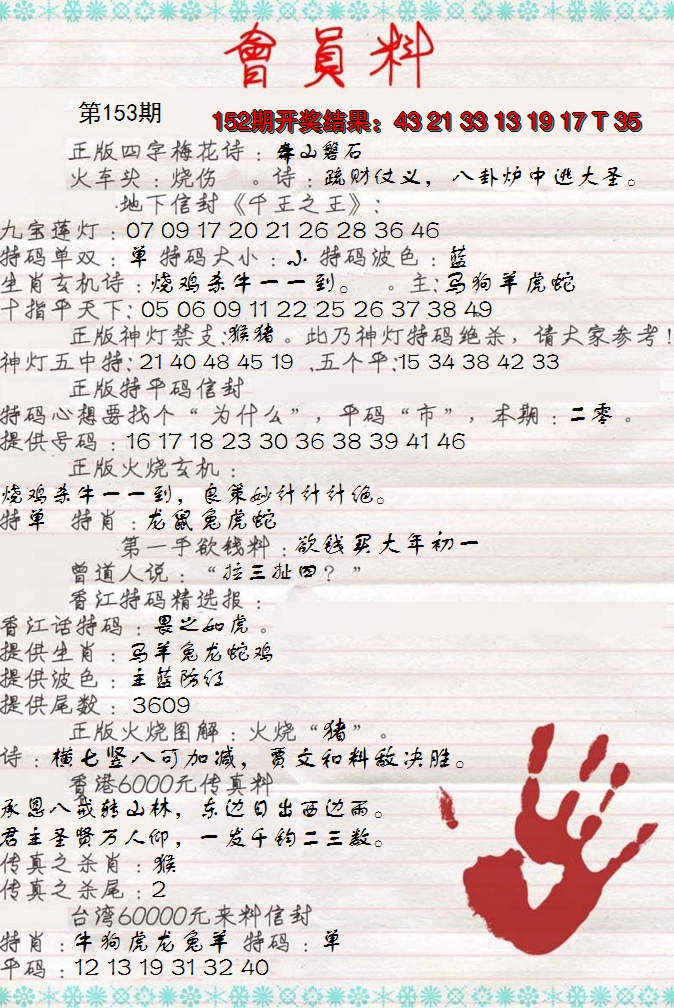 會員料
第153期
152期开奖结果：43 21 33 13 19 17 T 35
正版四字梅花诗：牛山磐石
火车头：烧伤 。诗：疏财仗义，八卦炉中逃大圣。
地下信封《千王之王》：
九宝莲灯：07 09 17 20 21 26 28 36 46
特码单双：单 特码大小：小 特码波色：蓝
生肖玄机诗：烧鸡杀牛一一到。 。主：马狗羊虎蛇
十指平天下：05 06 09 11 22 25 26 37 38 49
正版神灯禁支：猴猪。此乃神灯特码绝杀，请大家参考！
神灯五中特：21 40 48 45 19 、五个平：15 34 38 42 33
正版特平码信封
特码心想要找个“为什么”，平码“市”，本期：二零。
提供号码：16 17 18 23 30 36 38 39 41 46
正版火烧玄机：
烧鸡杀牛一一到，良策妙计计计绝。
特单 特肖：龙鼠兔虎蛇
第一手欲钱料：欲钱买大年初一
曾道人说：“拉三扯四？”
香江特码精选报：
香江话特码：畏之如虎。
提供生肖：马羊兔龙蛇鸡
提供波色：主蓝防红
提供尾数：3609
正版火烧图解：火烧“猪”。
诗：横七竖八可加减，贾文和料敌决胜。
香港6000元传真料
承恩八戒转山林，东边日出西边雨。
君主圣贤万人仰，一发千钧二三数。
传真之杀肖：猴
传真之杀尾：2
台湾60000元来料信封
特肖：牛狗虎龙兔羊 特码：单
平码：12 13 19 31 32 40